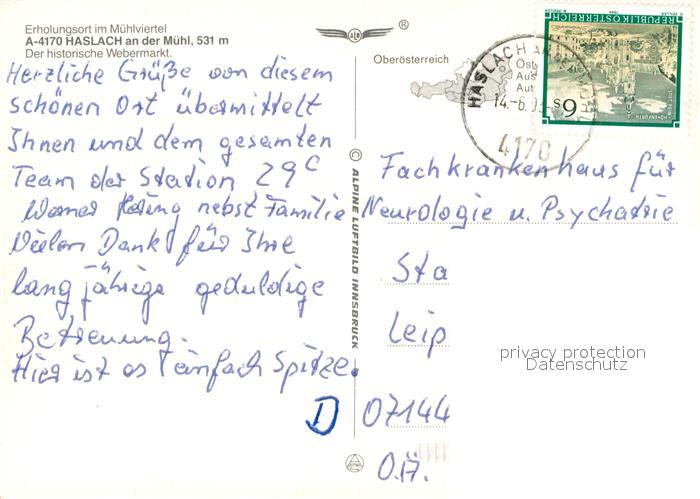 Erholungsort im Mühlviertel
A-4170 HASLACH an der Mühl, 531 m
Der historische Webermarkt.
Herzliche Grüße von diesem
schönen Ort übermittelt
Ihnen und dem gesamten
Team der Station 29C
Werner nebst Familie
Vielen Dank für Ihre
langjährige geduldige
Betreuung.
Hier ist es einfach Spitze.
®
© ALPINE LUFTBILD INNSBRUCK
Oberösterreich
HASLACH AN DER
Öst
Aus
Aut
14.-6.
4170
REPUBLIK ÖSTERREICH
S 6
Fachkrankenhaus für
Neurologie u. Psychatrie
Sta
Leip
D 07144
O.Ä.
privacy protection
Datenschutz